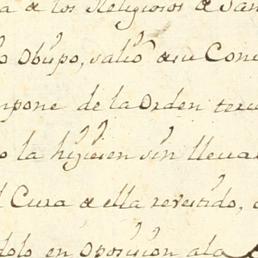 a de los Religiosos de San
o Obispo, salió de su Con
mpone de la Orden terce
o la hiziesen sin lleva
l Cura de ella revestido,
dolo en oposicion a la